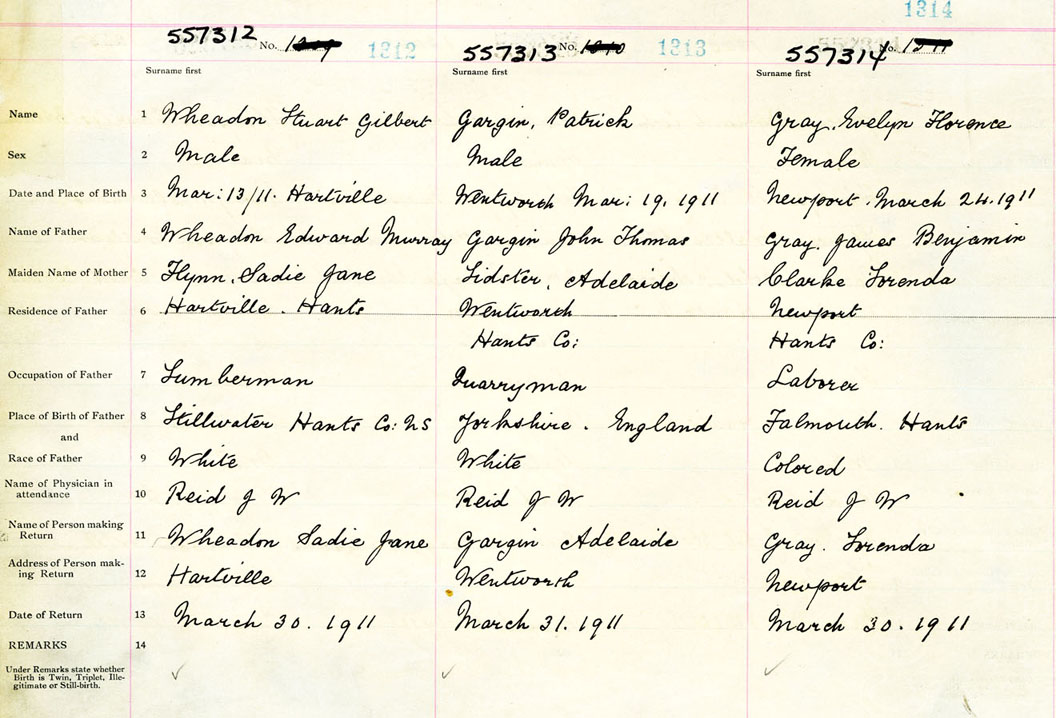 1314
557312 No. 1312
557313 No. 1313
557314 No.
Surname first Surname first Surname first
Name 1 Wheadon Stuart Gilbert Gargin, Patrick Gray, Evelyn Florence
Sex 2 Male Male Female
Date and Place of Birth 3 Mar: 13/11. Hartville Wentworth Mar: 19, 1911 Newport. March 24. 1911
Name of Father 4 Wheadon Edward Murray Gargin John Thomas Gray. James Benjamin
Maiden Name of Mother 5 Flynn, Sadie Jane Lidster, Adelaide Clarke Lorenda
Residence of Father 6 Hartville. Hants Wentworth Newport
Hants Co: Hants Co:
Occupation of Father 7 Lumberman Quarryman Laborer
Place of Birth of Father 8 Stillwater Hants Co: NS Yorkshire. England Falmouth. Hants
and
Race of Father 9 White White Colored
Name of Physician in
attendance 10 Reid J W Reid J W Reid J W
Name of Person making
Return 11 Wheadon Sadie Jane Gargin Adelaide Gray. Lorenda
Address of Person mak-
ing Return 12 Hartville Wentworth Newport
Date of Return 13 March 30. 1911 March 31. 1911 March 30. 1911
REMARKS 14
Under Remarks state whether
Birth is Twin, Triplet, Ille-
gitimate or Still-birth.